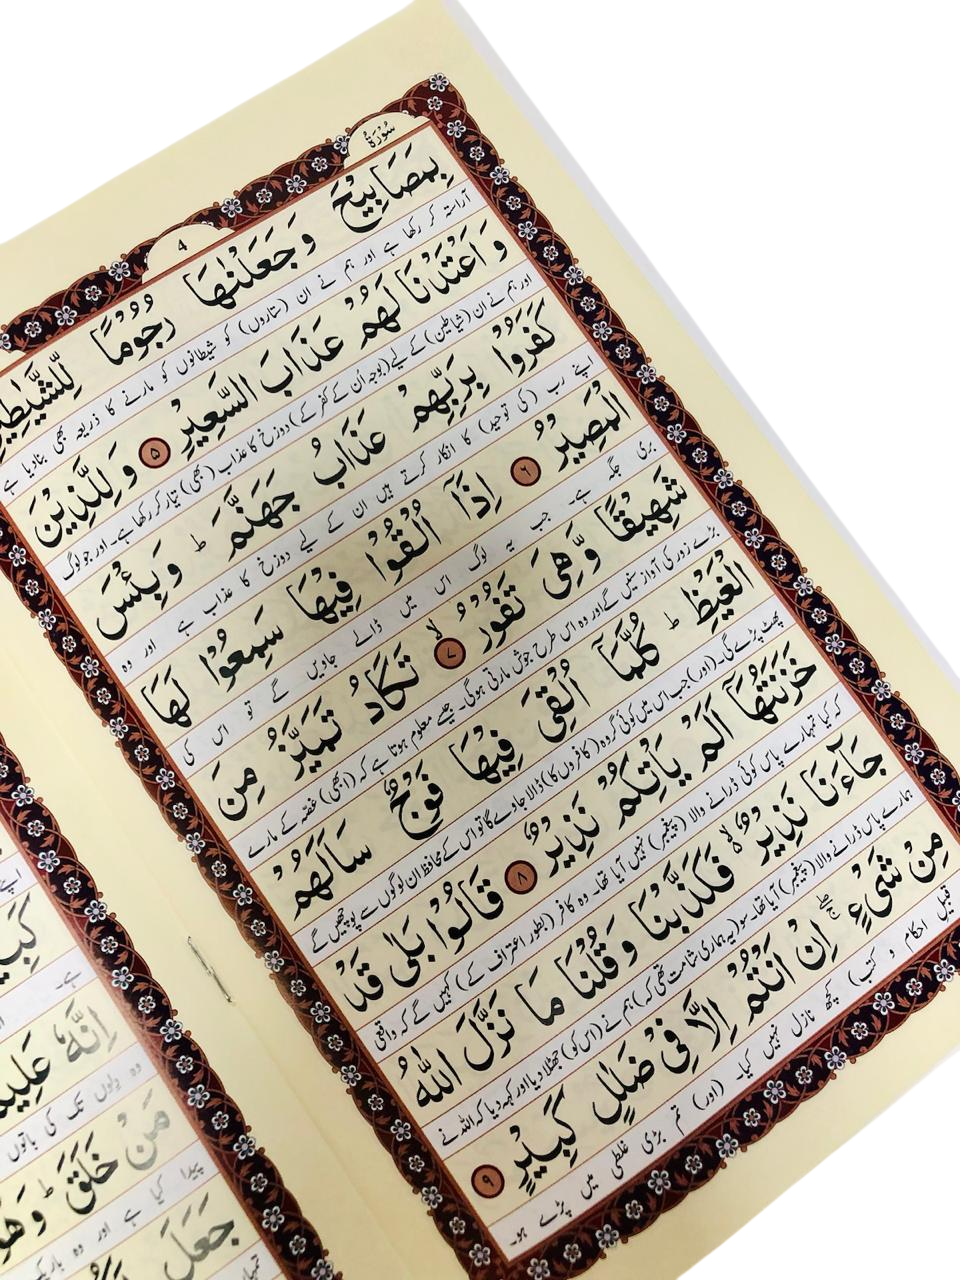 سُوْرَةُ
4
بِمَصَابِيْحَ وَجَعَلْنٰهَا رُجُوْمًا لِّلشَّيٰطِيْ
آراستہ کر رکھا ہے اور ہم نے ان (ستاروں) کو شیطانوں کو مارنے کا ذریعہ بھی بنادیا ہے
وَ اَعْتَدْنَا لَهُمْ عَذَابَ السَّعِيْرِ ۵ وَ لِلَّذِيْنَ
اور ہم نے ان (شیاطین) کے لیے (بوجہ ان کے کفر کے) دوزخ کا عذاب (بھی) تیار کر رکھا ہے۔ اور جو لوگ
كَفَرُوْا بِرَبِّهِمْ عَذَابُ جَهَنَّمَ ؕ وَ بِئْسَ
اپنے رب (کی توحید) کا انکار کرتے ہیں ان کے لیے دوزخ کا عذاب ہے اور وہ
الْمَصِيْرُ ۶ اِذَاۤ اُلْقُوْا فِيْهَا سَمِعُوْا لَهَا
بری جگہ ہے۔ جب یہ لوگ اس میں ڈالے جاویں گے تو اس کی
شَهِيْقًا وَّ هِىَ تَفُوْرُ ۙ ۷ تَكَادُ تَمَيَّزُ مِنَ
بڑے زور کی آواز سنیں گے اور وہ اس طرح جوش مارتی ہوگی۔ جیسے معلوم ہوتا ہے کہ (ابھی) غصّہ کے مارے
الْغَيْظِ ؕ كُلَّمَاۤ اُلْقِىَ فِيْهَا فَوْجٌ سَاَلَهُمْ
پھٹ پڑے گی۔ (اور) جب اس میں کوئی گروہ (کافروں کا) ڈالا جاوے گا تو اس کے محافظ ان لوگوں سے پوچھیں گے
خَزَنَتُهَاۤ اَلَمْ يَاْتِكُمْ نَذِيْرٌ ۸ قَالُوْا بَلٰى قَدْ
کہ کیا تمہارے پاس کوئی ڈرانے والا (پیغمبر) نہیں آیا تھا۔ وہ کافر (بطور اعتراف کے) کہیں گے کہ واقعی
جَآءَنَا نَذِيْرٌ ۙ فَكَذَّبْنَا وَ قُلْنَا مَا نَزَّلَ اللّٰهُ
ہمارے پاس ڈرانے والا (پیغمبر) آیا تھا۔ سو (یہ ہماری شامت تھی کہ) ہم نے (اس کو) جھٹلا دیا اور کہہ دیا کہ اللہ نے
مِنْ شَىْءٍ ۚۖ اِنْ اَنْتُمْ اِلَّا فِىْ ضَلٰلٍ كَبِيْرٍ ۹
قبیل احکام و کتب) کچھ نازل نہیں کیا۔ (اور) تم بڑی غلطی میں پڑے ہو۔
اپنے
كَبِيْ
ہے۔
اِنَّهٗ عَلِيْمٌ
وہ دلوں تک کی باتوں
مَنْ خَلَقَ ؕ وَ هُوَ
پیدا کیا ہے اور وہ باریک
جَعَلَ